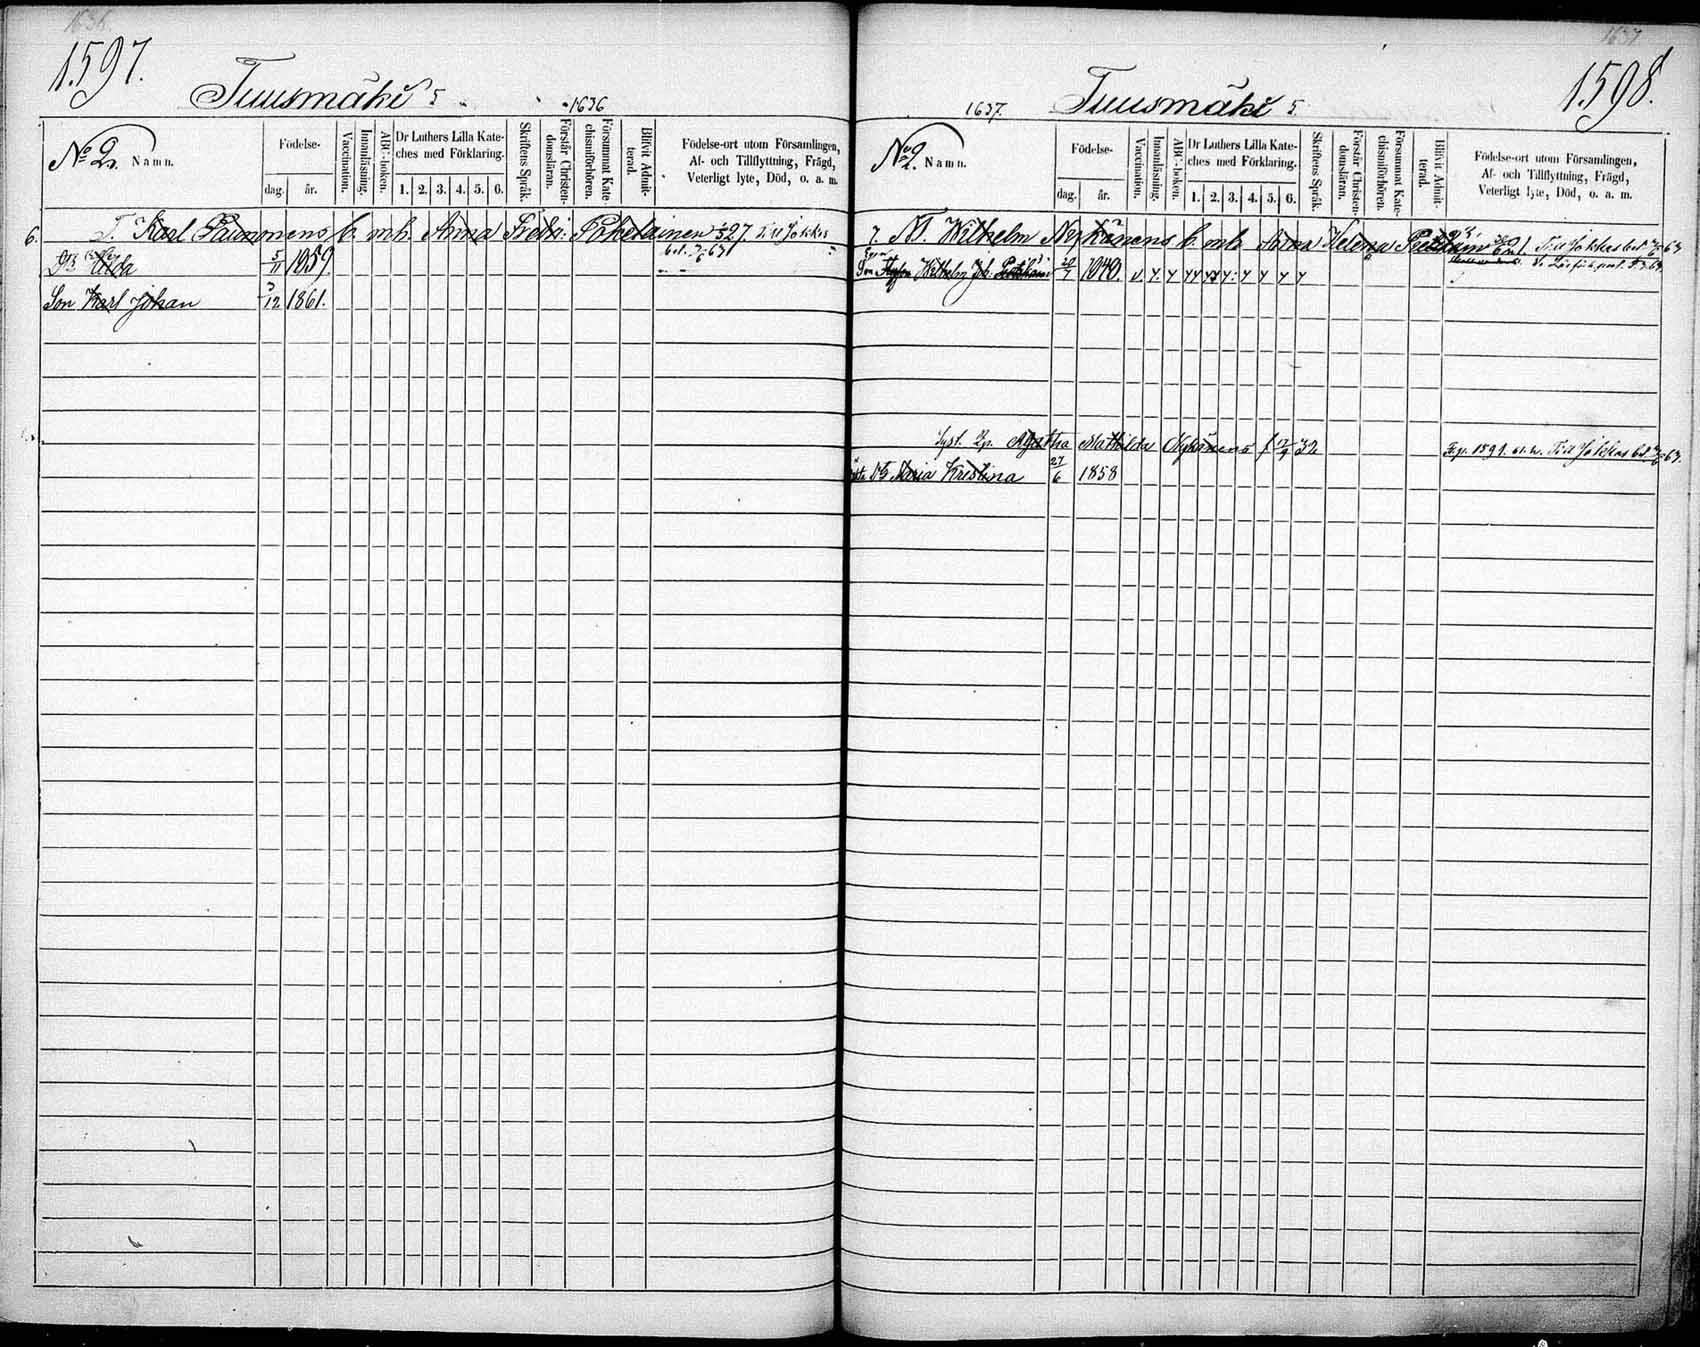 1636
1597.
Tuusmäki 5
1636
No 2. Namn.
Födelse-
dag. år.
Vaccination.
Innanläsning.
ABC-boken.
Dr Luthers Lilla Kate-
ches med Förklaring.
1. 2. 3. 4. 5. 6.
Skriftens Språk.
Förstår Christen-
domsläran.
Försummat Kate-
chismiförhören.
Blifvit Admit-
terad.
Födelse-ort utom Församlingen,
Af- och Tillflyttning, Frägd,
Veterligt lyte, Död, o. a. m.
6. T. Karl Paunonens b. m. h. Anna Fredri: Pökelainen 27. Till Jokkas
bet. 63
Dr Alda 5/11 1859.
Son Karl Johan 3/12 1861.
1637
1598.
1637. Tuusmäki 5.
No 2. Namn.
Födelse-
dag. år.
Vaccination.
Innanläsning.
ABC-boken.
Dr Luthers Lilla Kate-
ches med Förklaring.
1. 2. 3. 4. 5. 6.
Skriftens Språk.
Förstår Christen-
domsläran.
Försummat Kate-
chismiförhören.
Blifvit Admit-
terad.
Födelse-ort utom Församlingen,
Af- och Tillflyttning, Frägd,
Veterligt lyte, Död, o. a. m.
7. M. Wilhelm Nykänens b. m. h. Anna Helena Till Jokkas bet. 63
Son Wilhelm Joh. 20/7 1840.
Syst. Agatha Mathilda Nykänens f. 7/9 32 Fr. p. 1591. Till Jokkas bet. 63.
Maria Kristina 27/6 1858